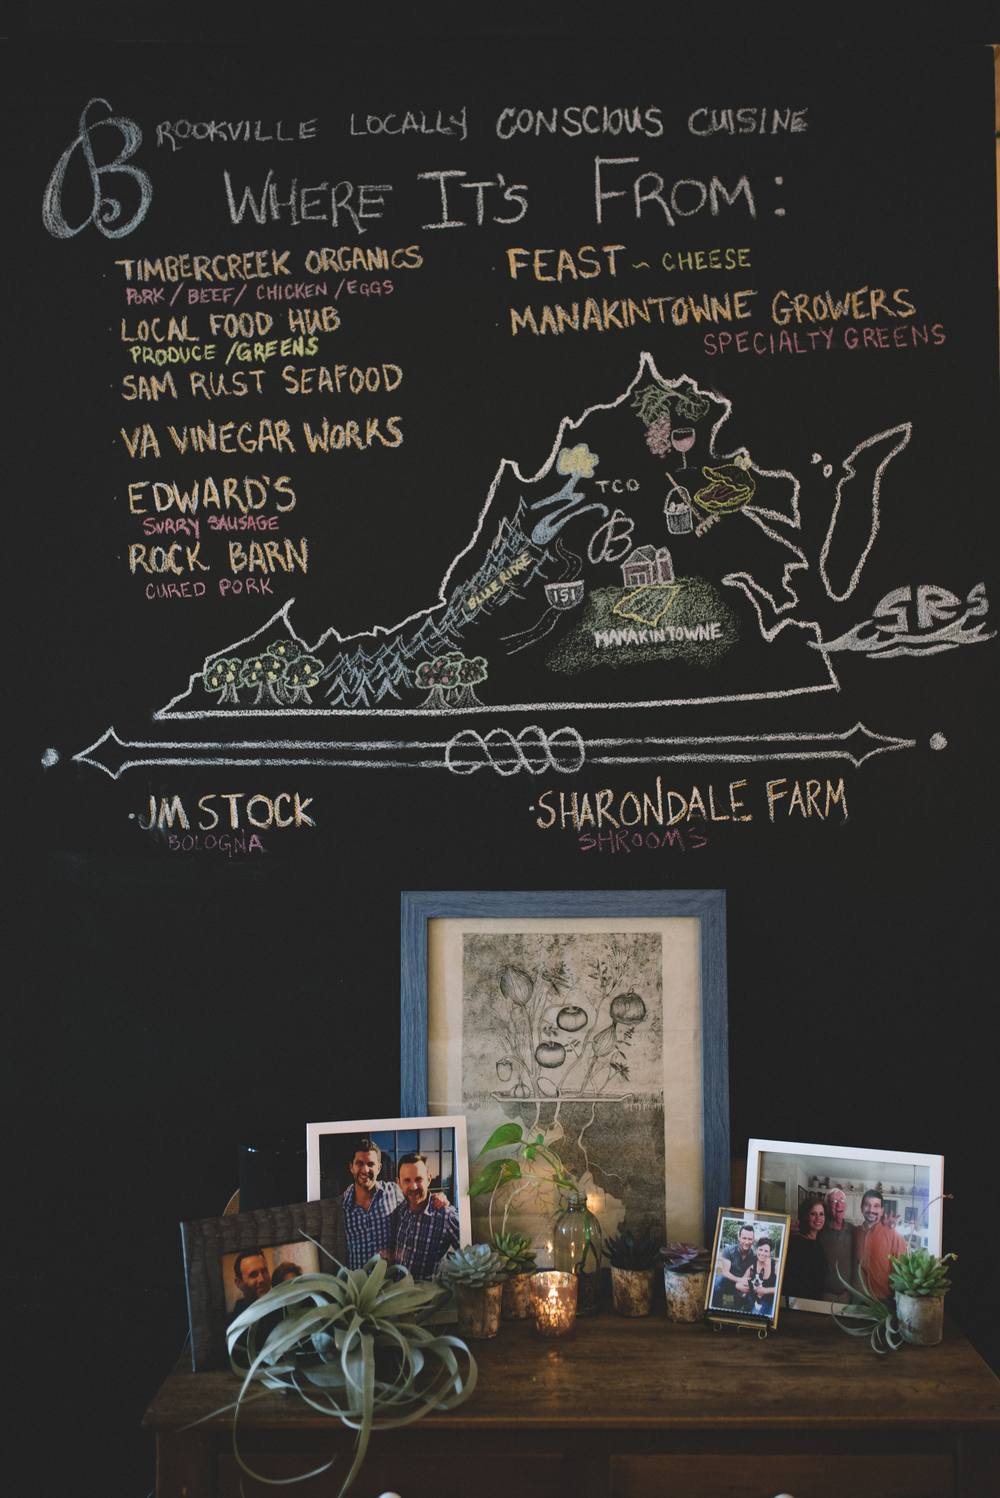 BROOKVILLE LOCALLY CONSCIOUS CUISINE
WHERE IT'S FROM:
TIMBERCREEK ORGANICS
PORK / BEEF / CHICKEN / EGGS
LOCAL FOOD HUB
PRODUCE / GREENS
SAM RUST SEAFOOD
VA VINEGAR WORKS
EDWARD'S
SURRY SAUSAGE
ROCK BARN
CURED PORK
FEAST ~ CHEESE
MANAKINTOWNE GROWERS
SPECIALTY GREENS
TCO
B
BLUE RIDGE
151
MANAKINTOWNE
SRS
JM STOCK
BOLOGNA
SHARONDALE FARM
SHROOMS